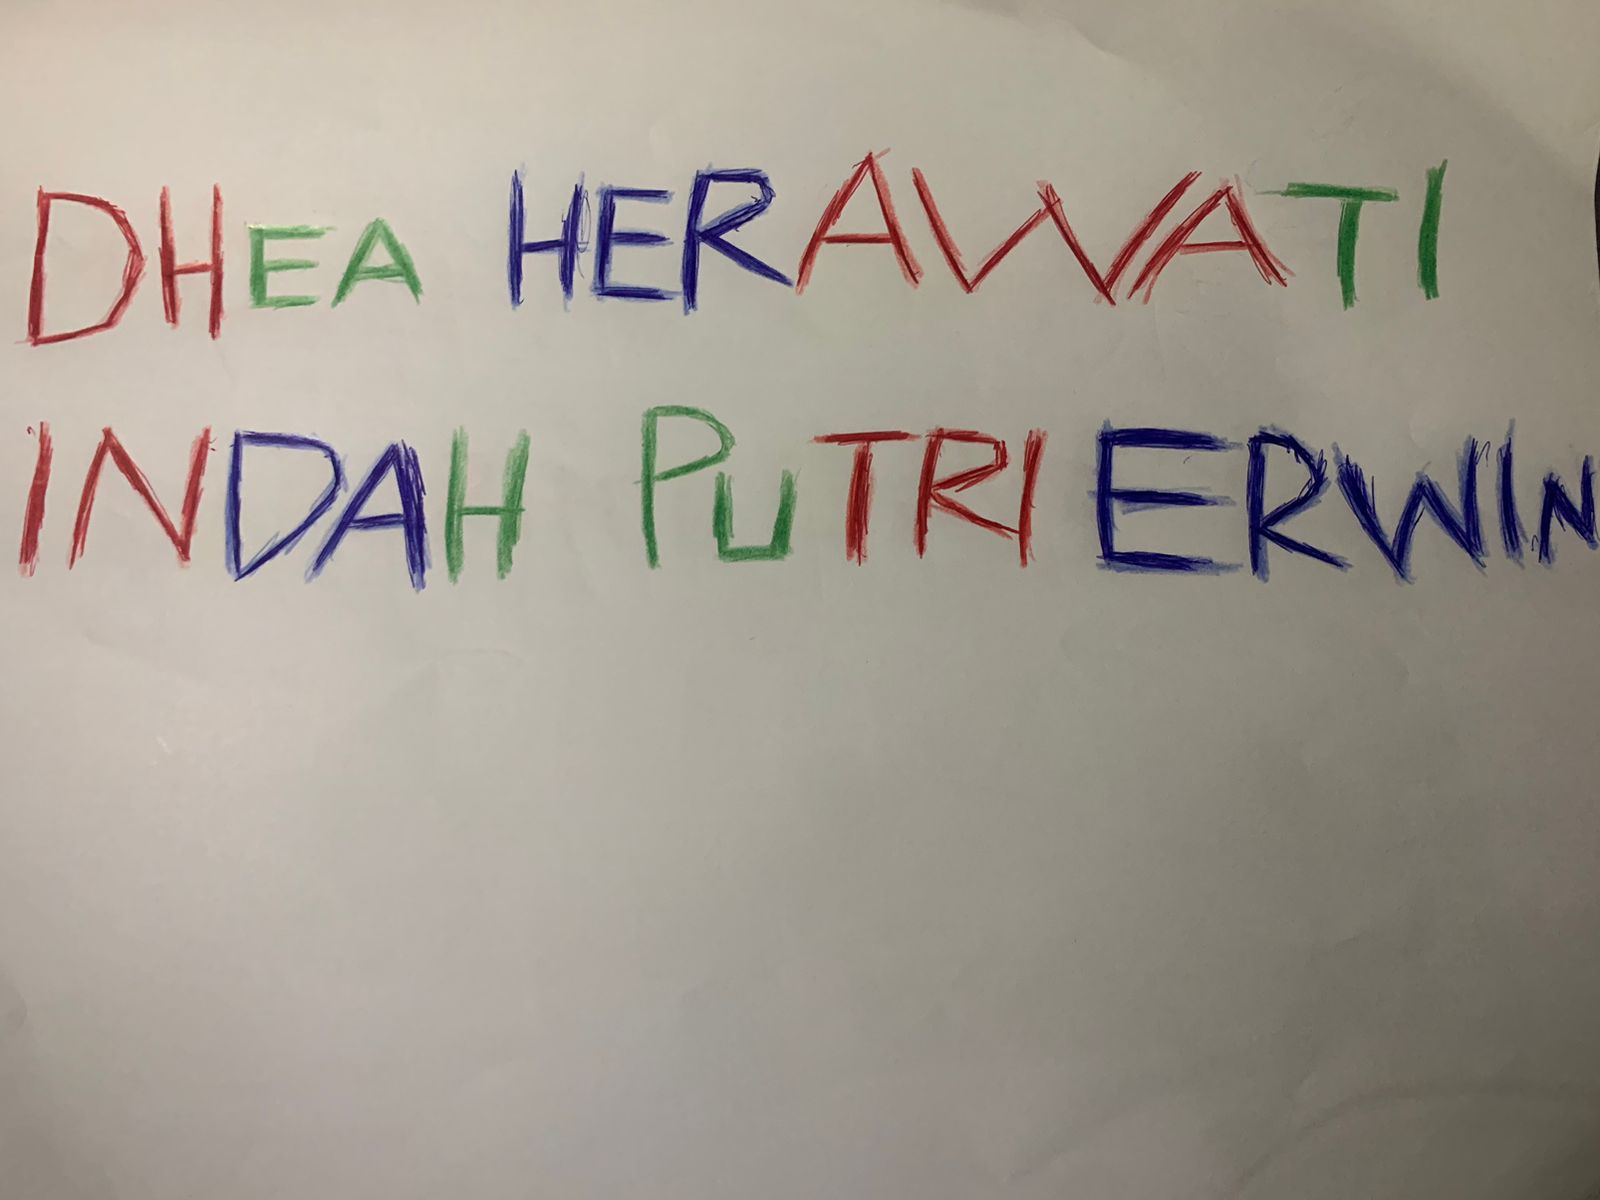 DHEA HERAWATI
INDAH PUTRI ERWIN